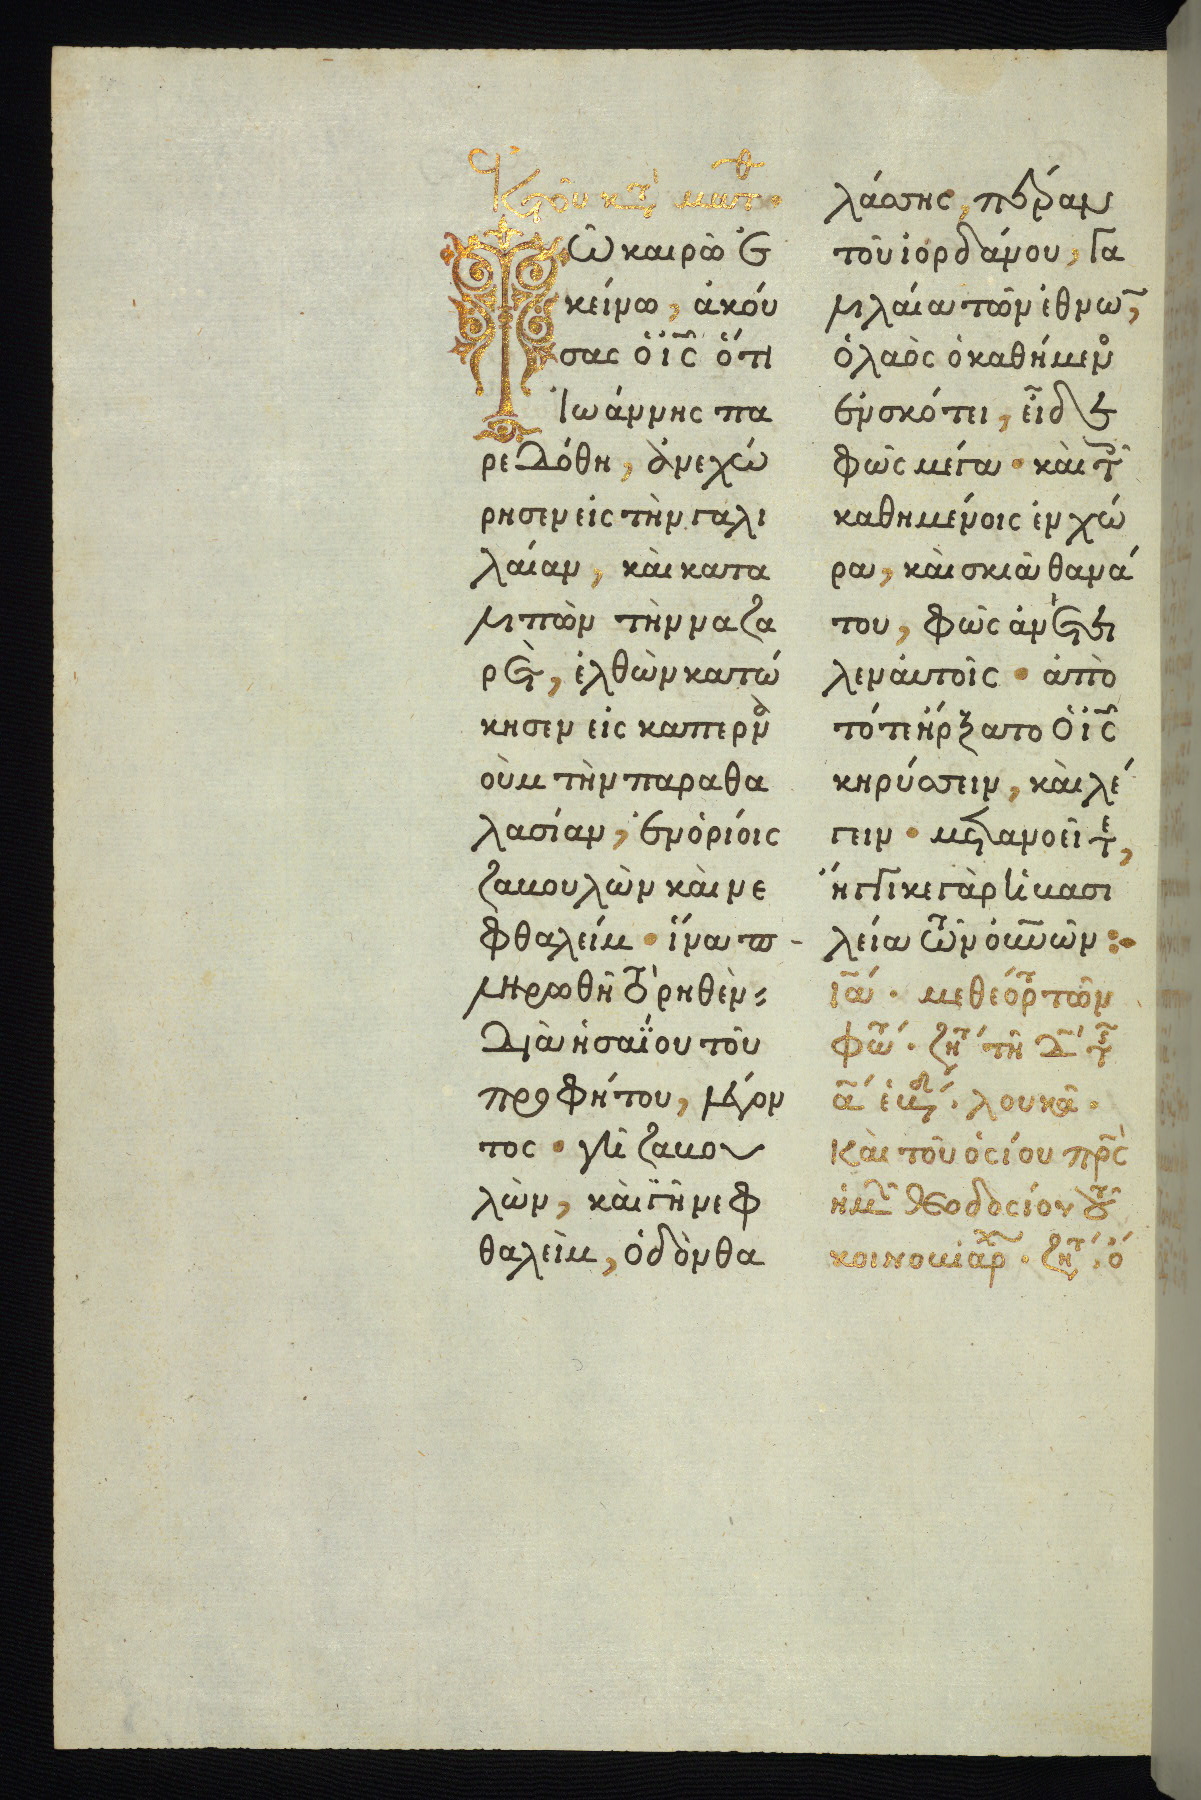 Ἐκ τοῦ κατὰ ματθ.
Τῶ καιρῶ ἐ
κείνω, ἀκού
σας ὁ ἰς ὅτι
Ἰωάννης πα
ρεδόθη, ἀνεχώ
ρησεν εἰς τὴν γαλι
λαίαν, καὶ κατα
λιπὼν τὴν ναζα
ρὲτ, ἐλθὼν κατώ
κησεν εἰς καπερνα
οὺμ τὴν παραθα
λασίαν, ἐν ὁρίοις
ζαβουλὼν καὶ νε
φθαλείμ. ἵνα π-
ληρωθῆ τὸ ῥηθὲν
διὰ ἡσαΐου τοῦ
προφήτου, λέγον
τος. γῆ ζαβου
λὼν, καὶ γῆ νεφ
θαλεὶμ, ὁδὸν θα
λάσσης, πέραν
τοῦ ἰορδάνου, γα
λιλαία τῶν ἐθνῶν,
ὁ λαὸς ὁ καθήμενος
ἐν σκότει, εἶδε
φῶς μέγα. καὶ τοῖς
καθημένοις ἐν χώ
ρα, καὶ σκιᾶ θανά
του, φῶς ἀνέτει
λεν αὐτοῖς. ἀπὸ
τότε ἤρξατο ὁ ἰς
κηρύσσειν, καὶ λέ
γειν. μετανοεῖτε,
ἤγγικε γὰρ ἡ βασι
λεία τῶν οὐνῶν:
ια. μεθέορτ τῶν
φώτ. ζητ τῆ δ τῆς
α ἑβδ. λουκᾶ.
Καὶ τοῦ ὁσίου πρς
ἡμῶν θεοδοσίου τοῦ
κοινοβιάρχ. ζητ. ὁ